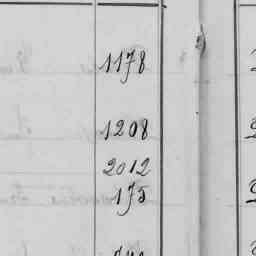 1178
1208
2012
175